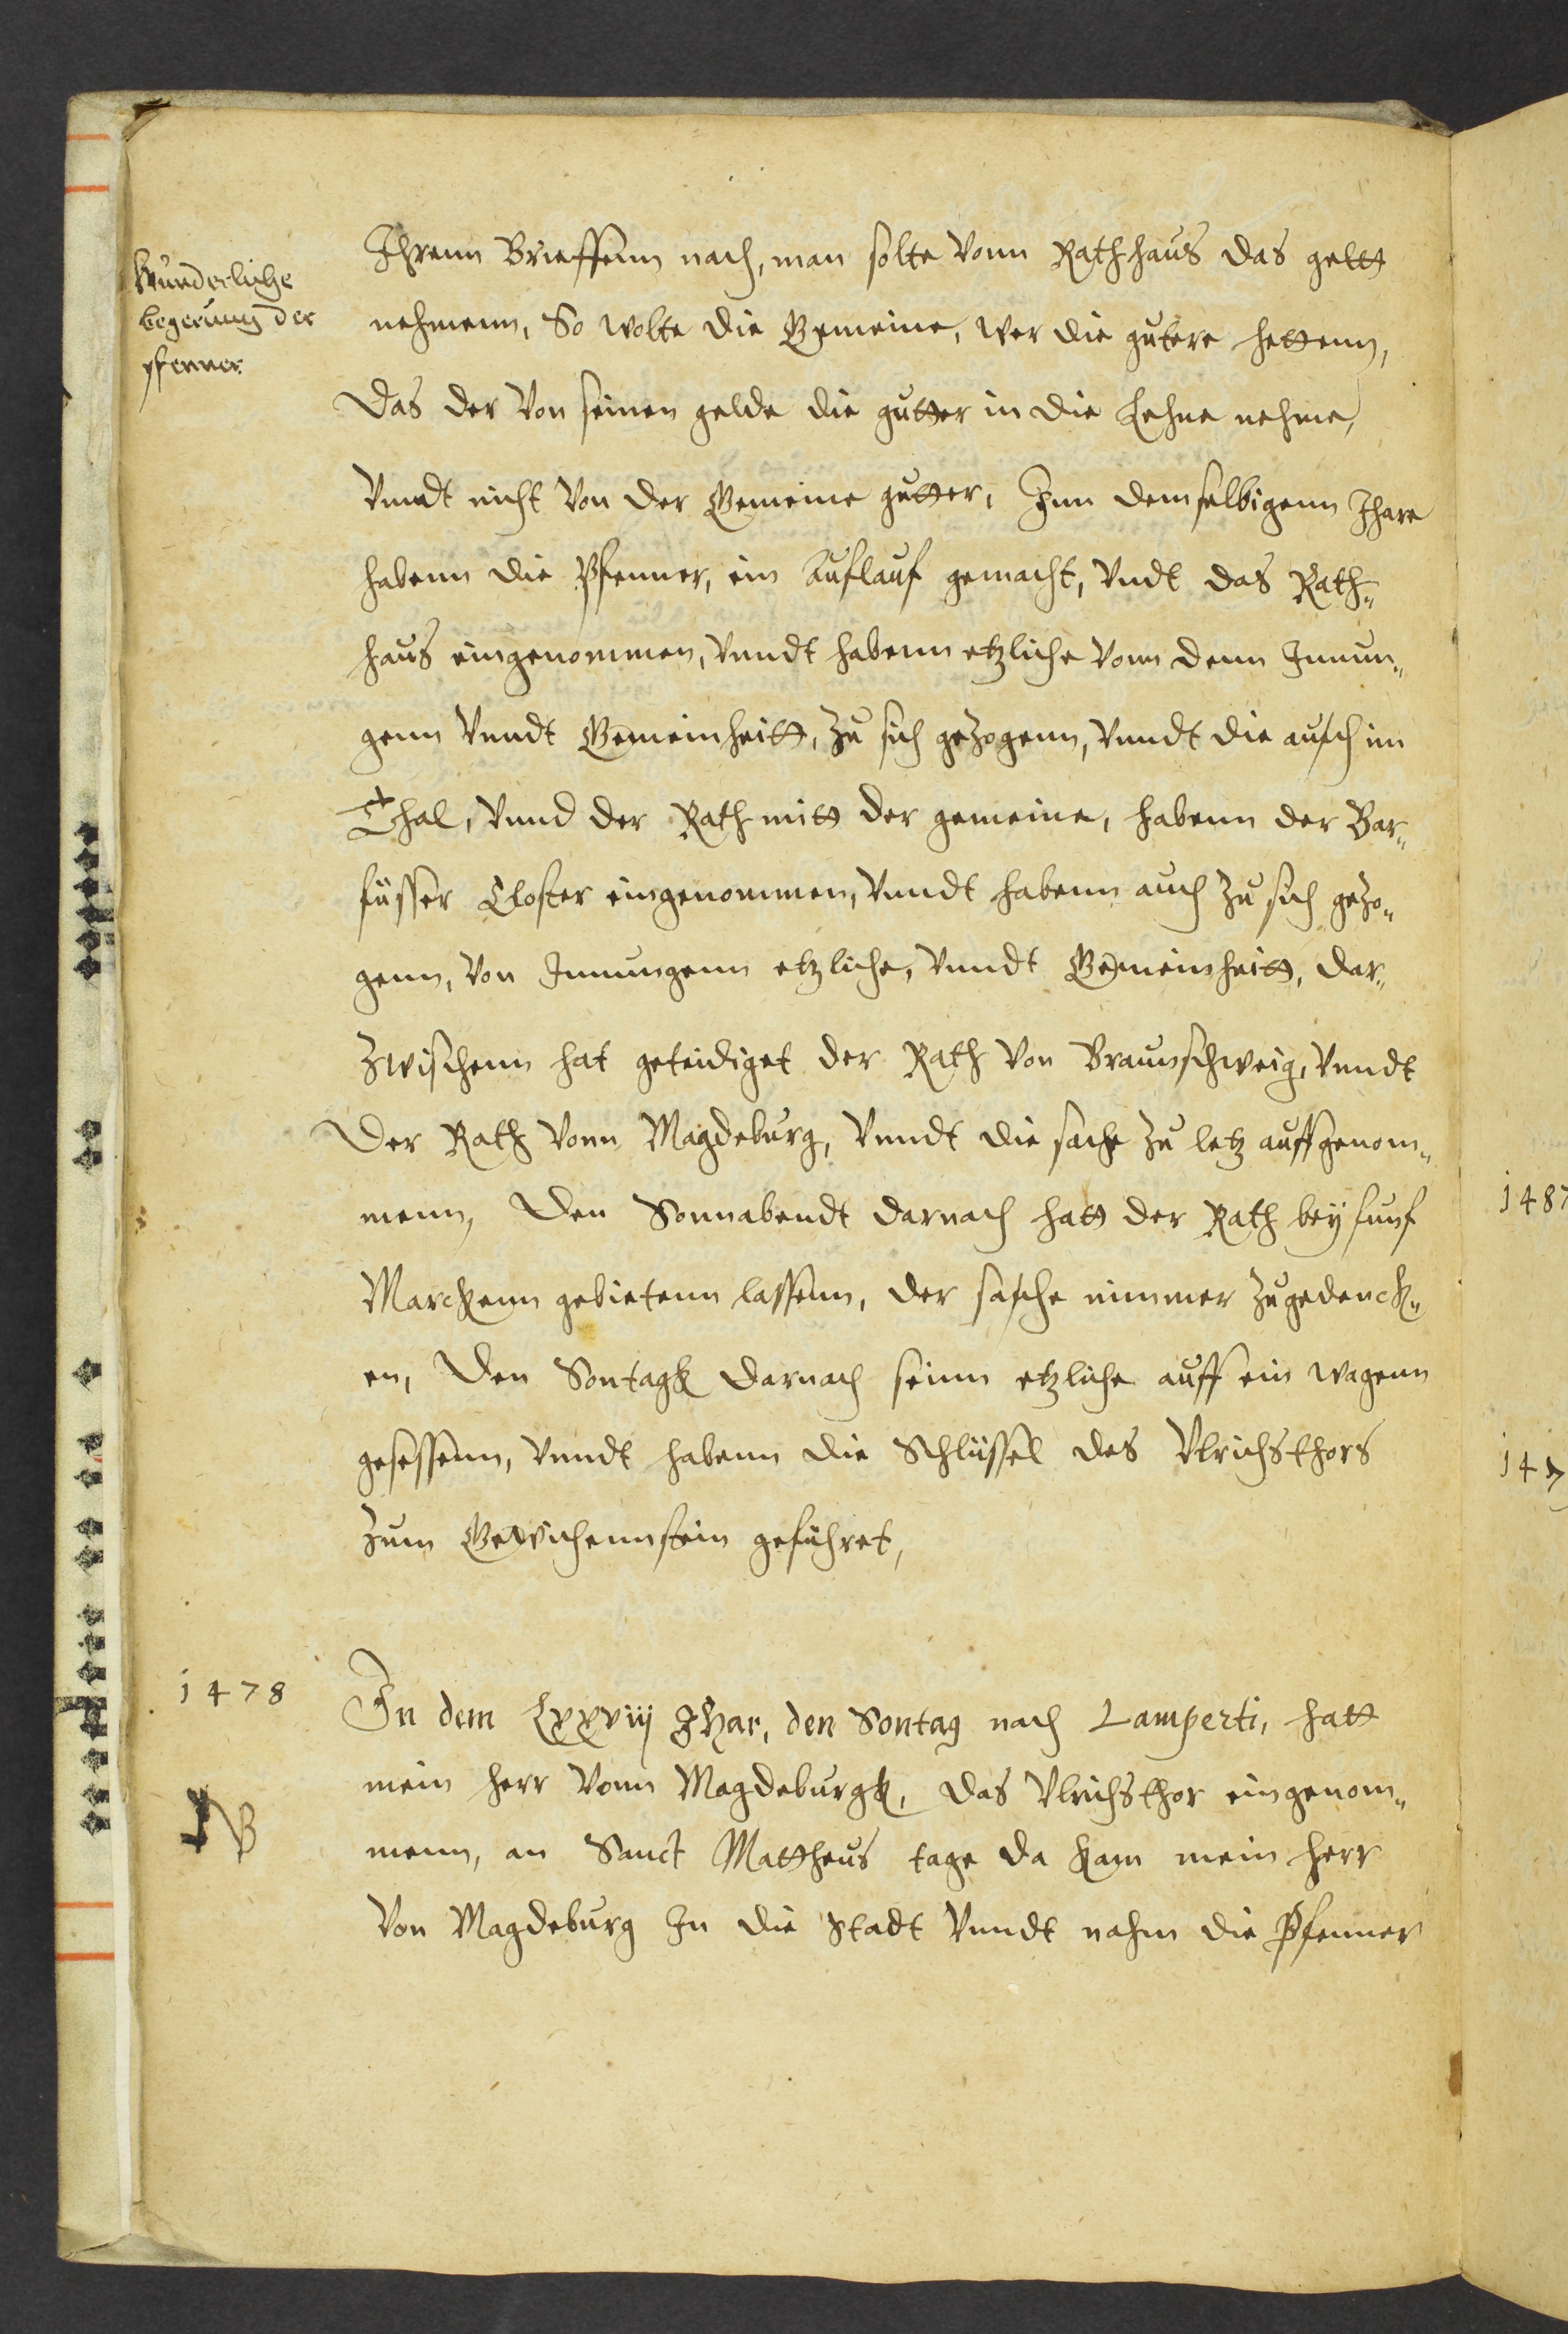 Wunderliche
begerung der
pfenner
Ihrenn Brieffenn nach, man solte vonn Rathhaus das geltt
nehmenn, So wolte die Gemeine, wer die gutere hettenn,
Das der von seinen gelde die gutter in die Lehne nehme,
vnndt nicht von der Gemeine gutter, Inn demselbigenn Ihare
habenn die Pfenner, ein Auflauf gemacht, vndt das Rath„
haus eingenommen, vnndt habenn etzliche vonn denn Innun„
genn vnndt Gemeinheitt, zu sich gezogenn, vnndt die auch im
Thal, vnnd der Rath mitt der gemeine, habenn der Bar„
füsser Closter eingenommen, vnndt habenn auch zu sich gezo„
genn, von Innungenn etzliche, vnndt Gemeinheitt, dar„
zwischenn hat geteidiget der Rath von Braunschweig, vnndt
Der Rath vonn Magdeburg, vnndt die sache zu letz auffgenom„
menn, Den Sonnabendt darnach hatt der Rath beÿ funf
Marckenn gebietenn lassenn, der sache nimmer zugedenck„
en, Den Sontagk darnach seinn etzliche auff ein wagenn
gesessenn, vnndt habenn die Schlüssel des Vlrichsthors
zum Gewichennstein geführet,
1478
In dem Lxxviij Ihar, den Sontag nach Lamperti, hatt
mein herr vonn Magdeburgk, das Vlrichsthor eingenom„
NB
menn, an Sanct Mattheus tage da kam mein herr
von Magdeburg In die Stadt vnndt nahm die Pfenner
1487